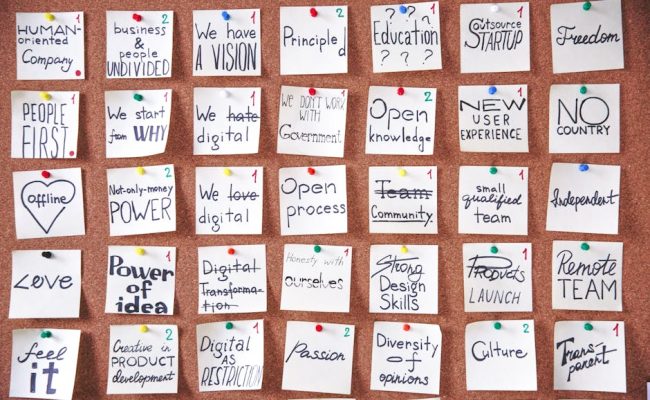 1
HUMAN-
oriented
Company.
2
business
&
people
UNDIVIDED
1
We have
A VISION
1
Principled
2
? ? ?
Education
? ? ?
1
Outsource
STARTUP
2
Freedom
1
PEOPLE
FIRST.
2
We start
from WHY
1
We hate
digital
1
We DON'T WORK
WITH
Government
2
Open
knowledge
1
NEW
USER
EXPERIENCE
2
NO
COUNTRY
offline
2
Not-only-money
POWER
1
We love
digital
1
Open
process
1
Team
Community
1
small
qualified
team
1
Independent
Love
1
Power
of
idea
1
Digital
Transforma-
tion
1
Honesty with
ourselves
Strong
Design
Skills
1
Products
LAUNCH
1
Remote
TEAM
2
feel
it
2
Creative in
PRODUCT
development
1
Digital
AS
RESTRICTION
2
Passion
1
Diversity
of
opinions
2
Culture
1
Trans-
parent